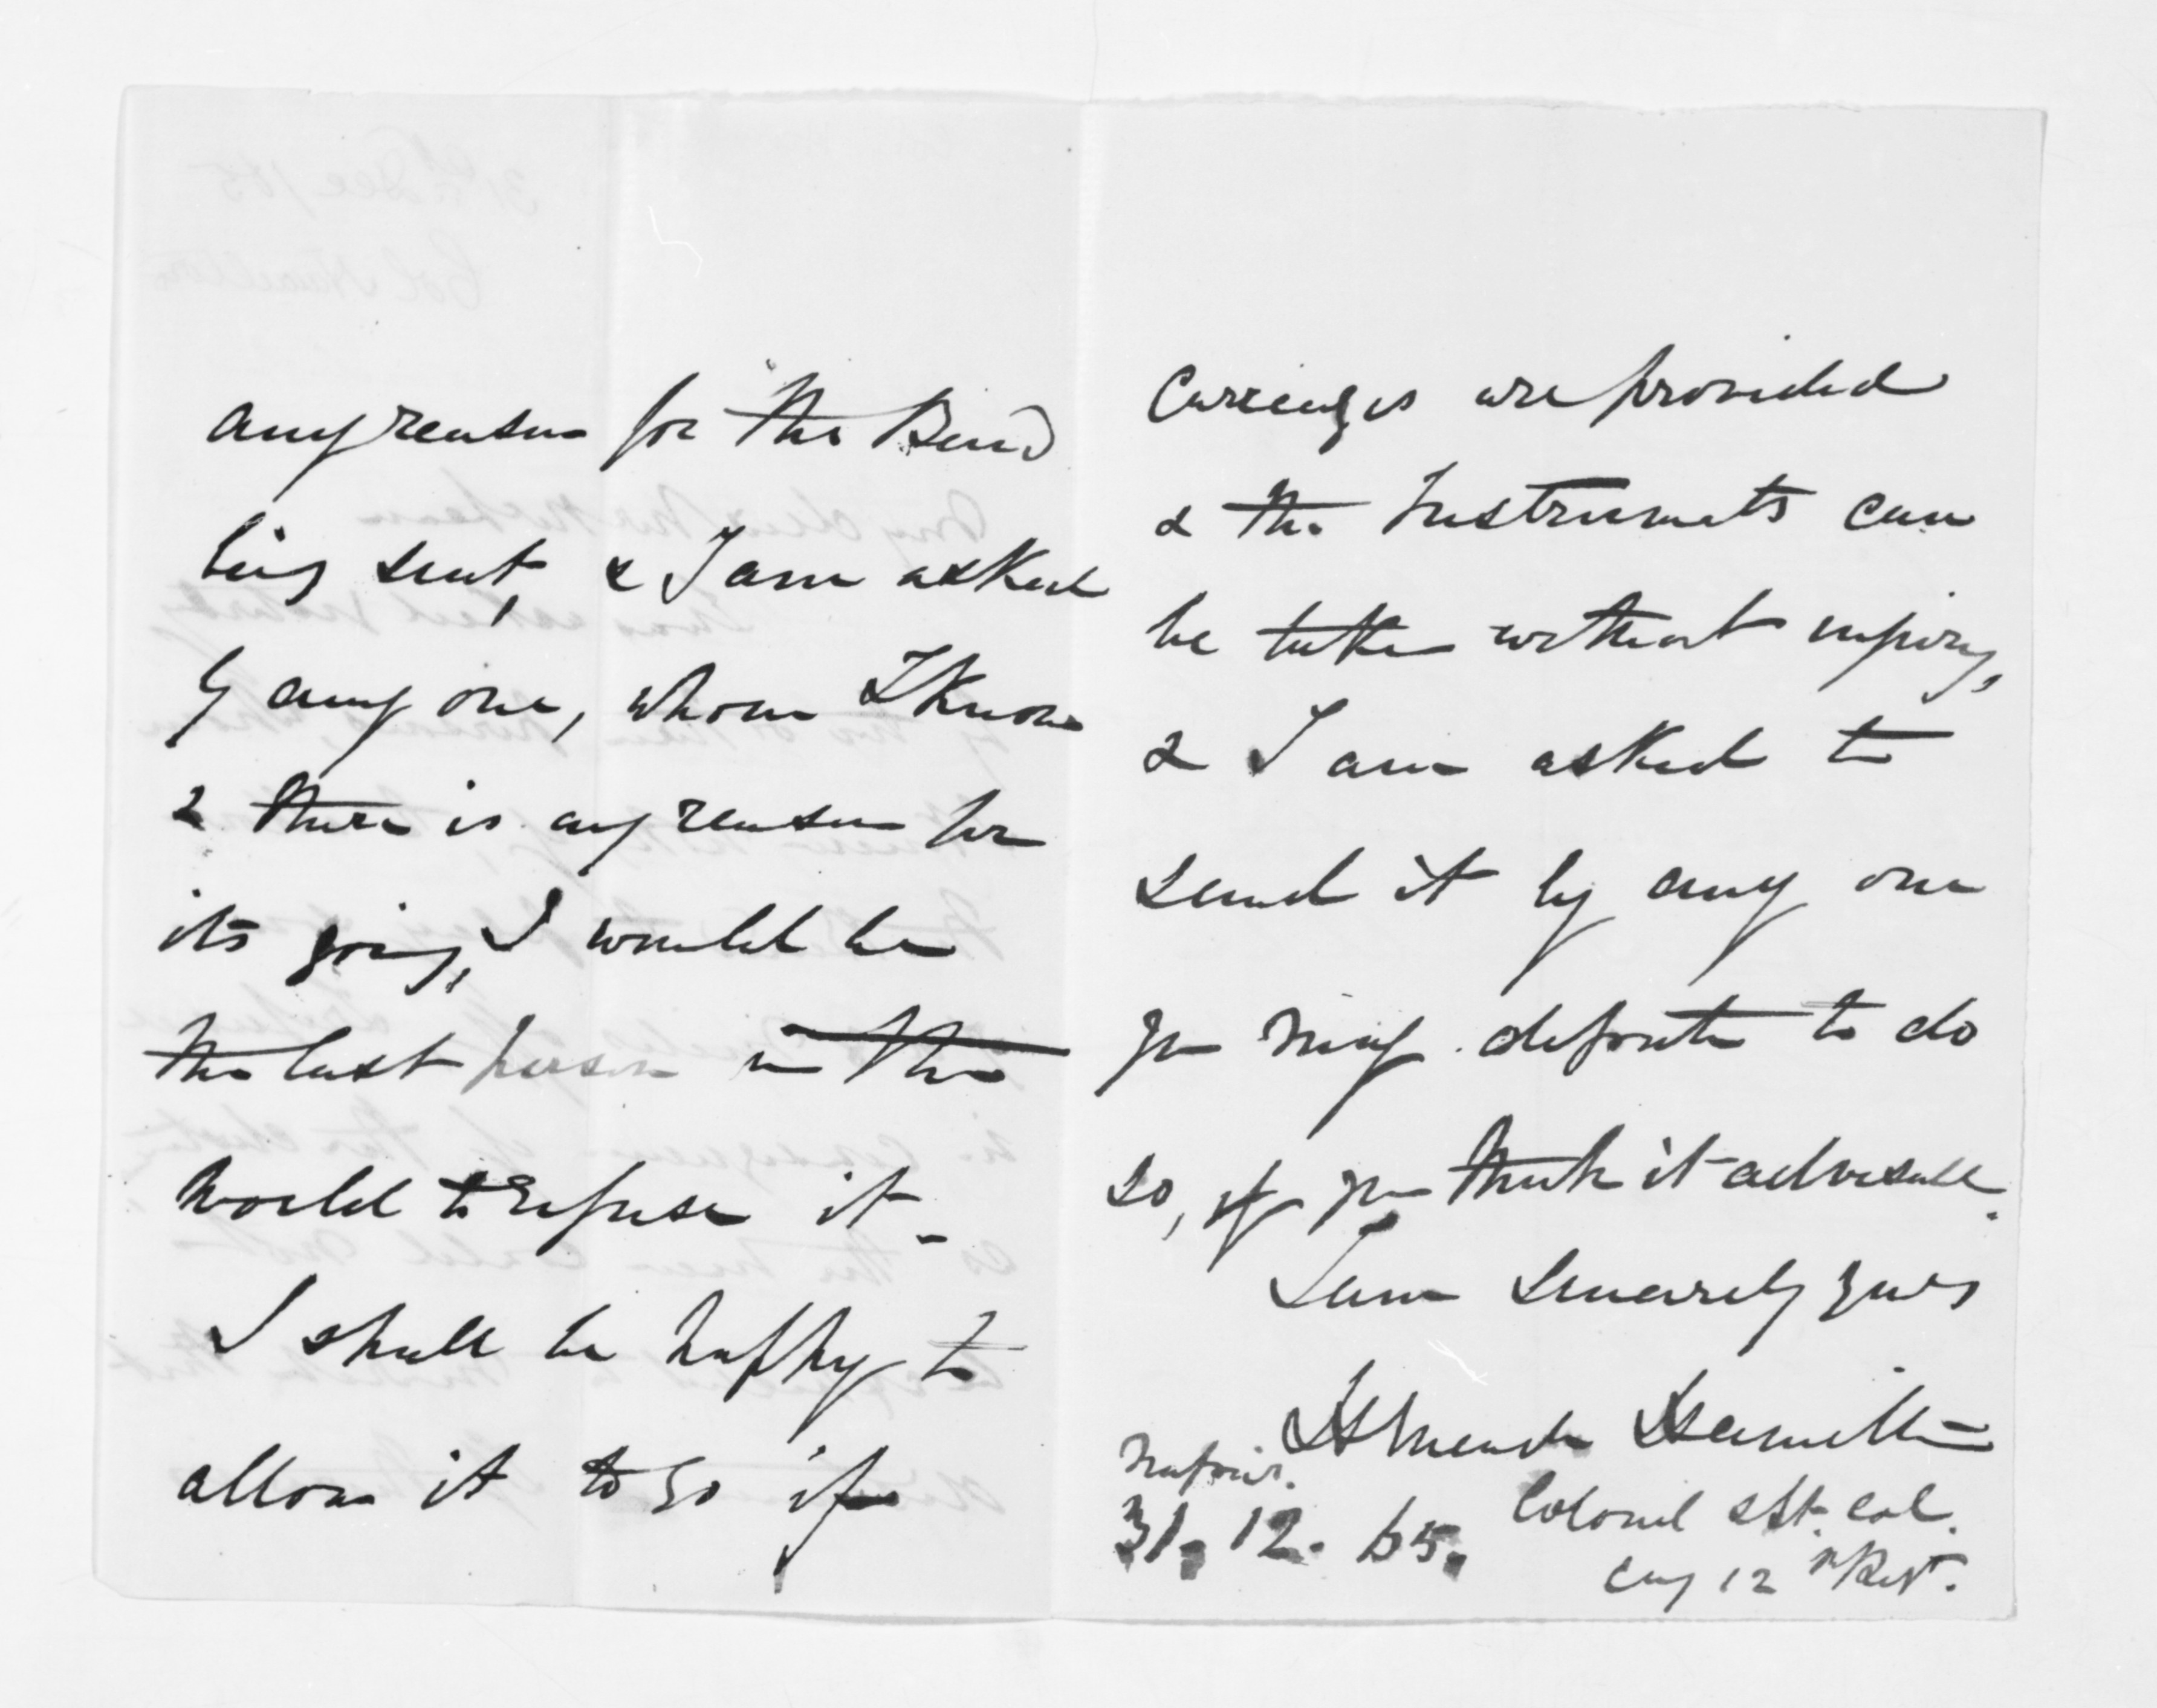 any reason for the Band
being sent, & I am asked
by any one, whom I know
& there is any reason for
its going, I would be
the last person in the
world to refuse it -
I shall be happy to
allow it to go if
Carriages are provided
& the Instruments can
be taken without injury,
& I am asked to
send it by any one
you may depute to do
so, if you think it advisable.
I am sincerely yours
H Meade Hamilton
Napier.
31. 12. 65.
Colonel & Lt. Col.
Comg 12th Regt.